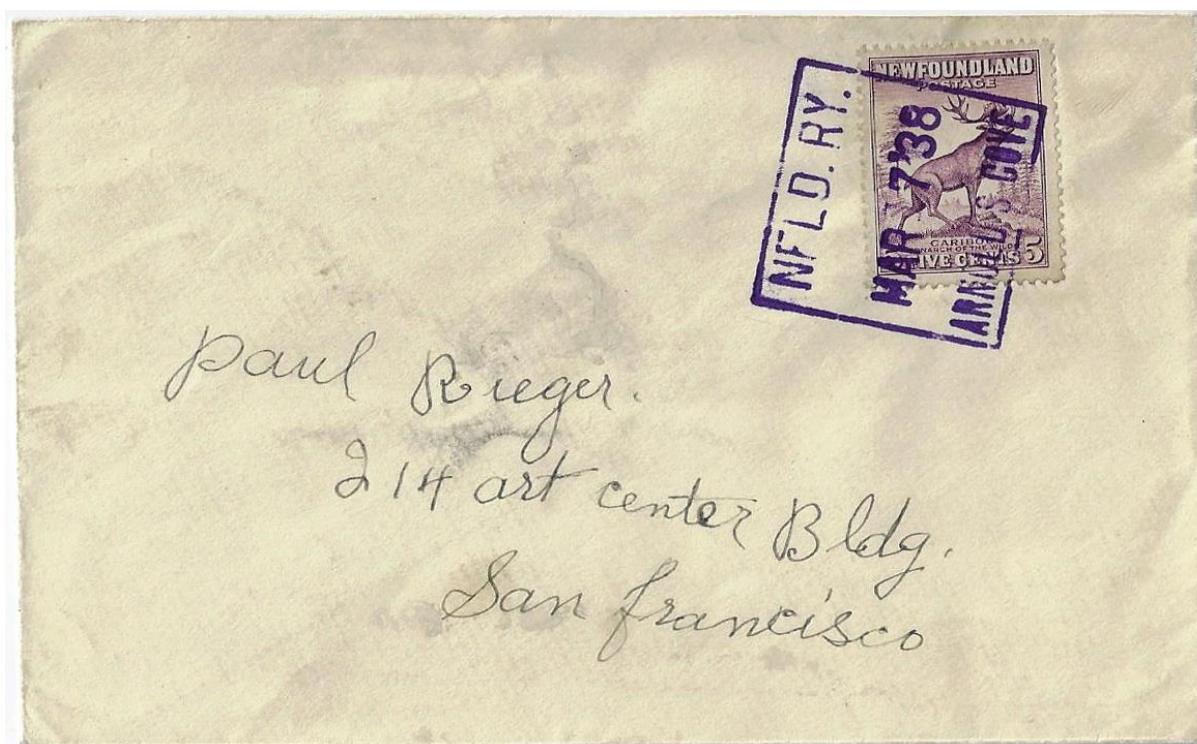 NEWFOUNDLAND
POSTAGE
CARIBOU
MONARCH OF THE WILDS
FIVE CENTS 5
NFLD. RY.
MAR 17'38
ARNOLDS COVE
Paul Rieger.
214 art center Bldg.
San Francisco